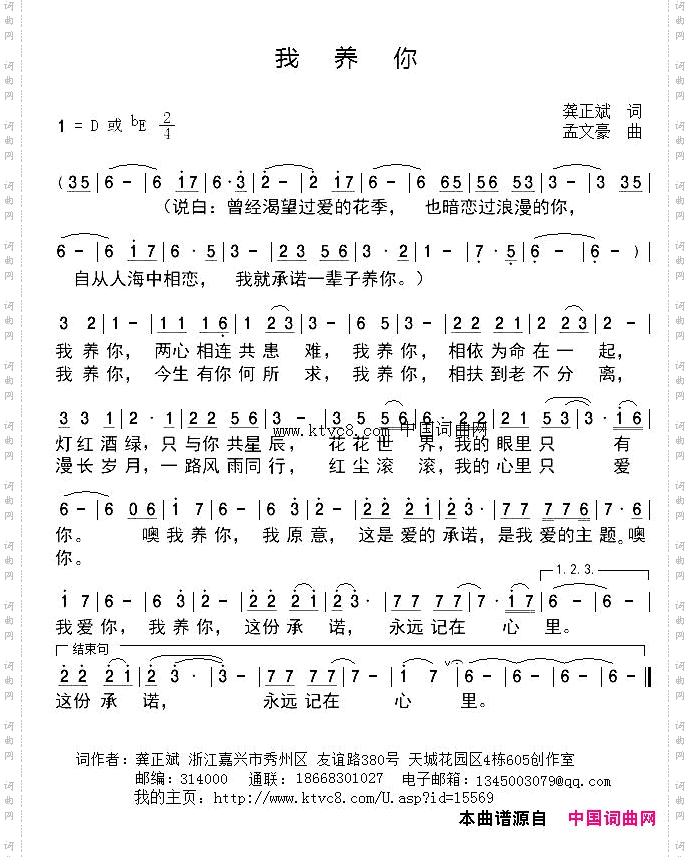 我 养 你
1 = D 或 ᵇE 2/4
龚正斌 词
孟文豪 曲
( 3 5 | 6 - | 6 1 7 | 6 · 3 | 2 - | 2 1 7 | 6 - | 6 6 5 | 5 6 5 3 | 3 - | 3 3 5 |
(说白：曾经渴望过爱的花季， 也暗恋过浪漫的你，
6 - | 6 1 7 | 6 · 5 | 3 - | 2 3 5 6 | 3 · 2 | 1 - | 7 · 5 | 6 - | 6 - ) |
自从人海中相恋， 我就承诺一辈子养你。)
3 2 | 1 - | 1 1 1 6 | 1 2 3 | 3 - | 6 5 | 3 - | 2 2 2 1 | 2 2 3 | 2 - |
我 养 你， 两心 相连 共 患 难， 我 养 你， 相依 为命 在 一 起，
我 养 你， 今生 有你 何 所 求， 我 养 你， 相扶 到老 不 分 离，
3 3 3 1 | 2 · 1 | 2 2 5 6 | 3 - | 3 5 5 6 | 3 · 3 | 2 2 1 2 | 5 5 3 | 3 · 1 6 |
www.ktvc8.com 中国词曲网
灯 红 酒 绿，只 与你 共星 辰， 花 花 世 界，我的 眼里 只 有
漫 长 岁 月，一 路风 雨同 行， 红 尘 滚 滚，我的 心里 只 爱
6 - | 6 0 6 | 1 7 | 6 - | 6 3 | 2 - | 2 2 2 1 | 2 3 · | 7 7 7 7 7 6 | 7 · 6 |
你。 噢 我 养 你， 我 原 意， 这是 爱的 承诺，是我 爱的主 题。噢
你。
1.2.3.
1 7 | 6 - | 6 3 | 2 - | 2 2 2 1 | 2 3 · | 7 7 7 7 | 7 · 1 7 | 6 - | 6 - |
我 爱 你， 我 养 你， 这份 承 诺， 永远 记在 心 里。
结束句
2 2 2 1 | 2 3 · | 3 - | 7 7 7 7 | 7 - | 1 7 | 6 - | 6 - | 6 - | 6 - ‖
这份 承 诺， 永远 记在 心 里。
词作者：龚正斌 浙江嘉兴市秀州区 友谊路380号 天城花园区4栋605创作室
邮编：314000 通联：18668301027 电子邮箱：1345003079@qq.com
我的主页：http://www.ktvc8.com/U.asp?id=15569
本曲谱源自 中国词曲网